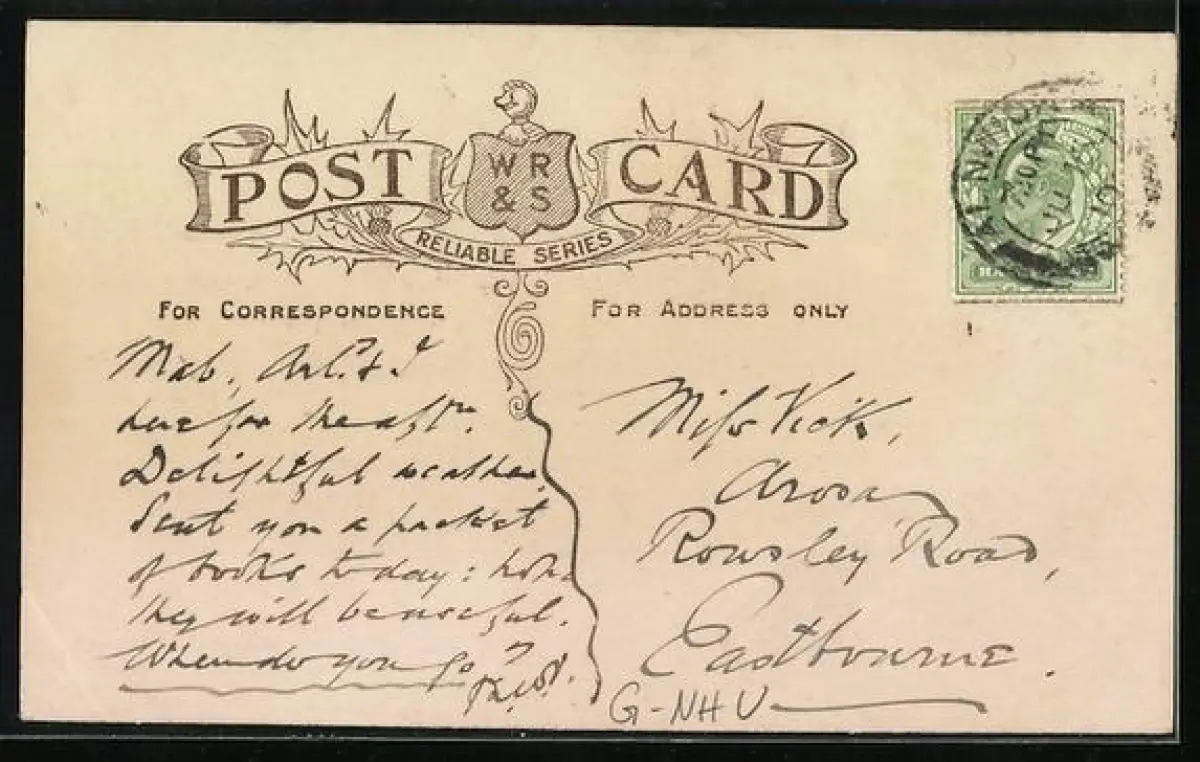 POST CARD
W R
& S
RELIABLE SERIES
FOR CORRESPONDENCE
FOR ADDRESS ONLY
7 30 PM
JU
10
HA
Mab, & I
here for the aftn.
Delightful weather.
Sent you a packet
of books today: hope
they will be useful.
When do you go?
Miss Vick,
Arosa
Rowsley Road,
Eastbourne.
G-NHU